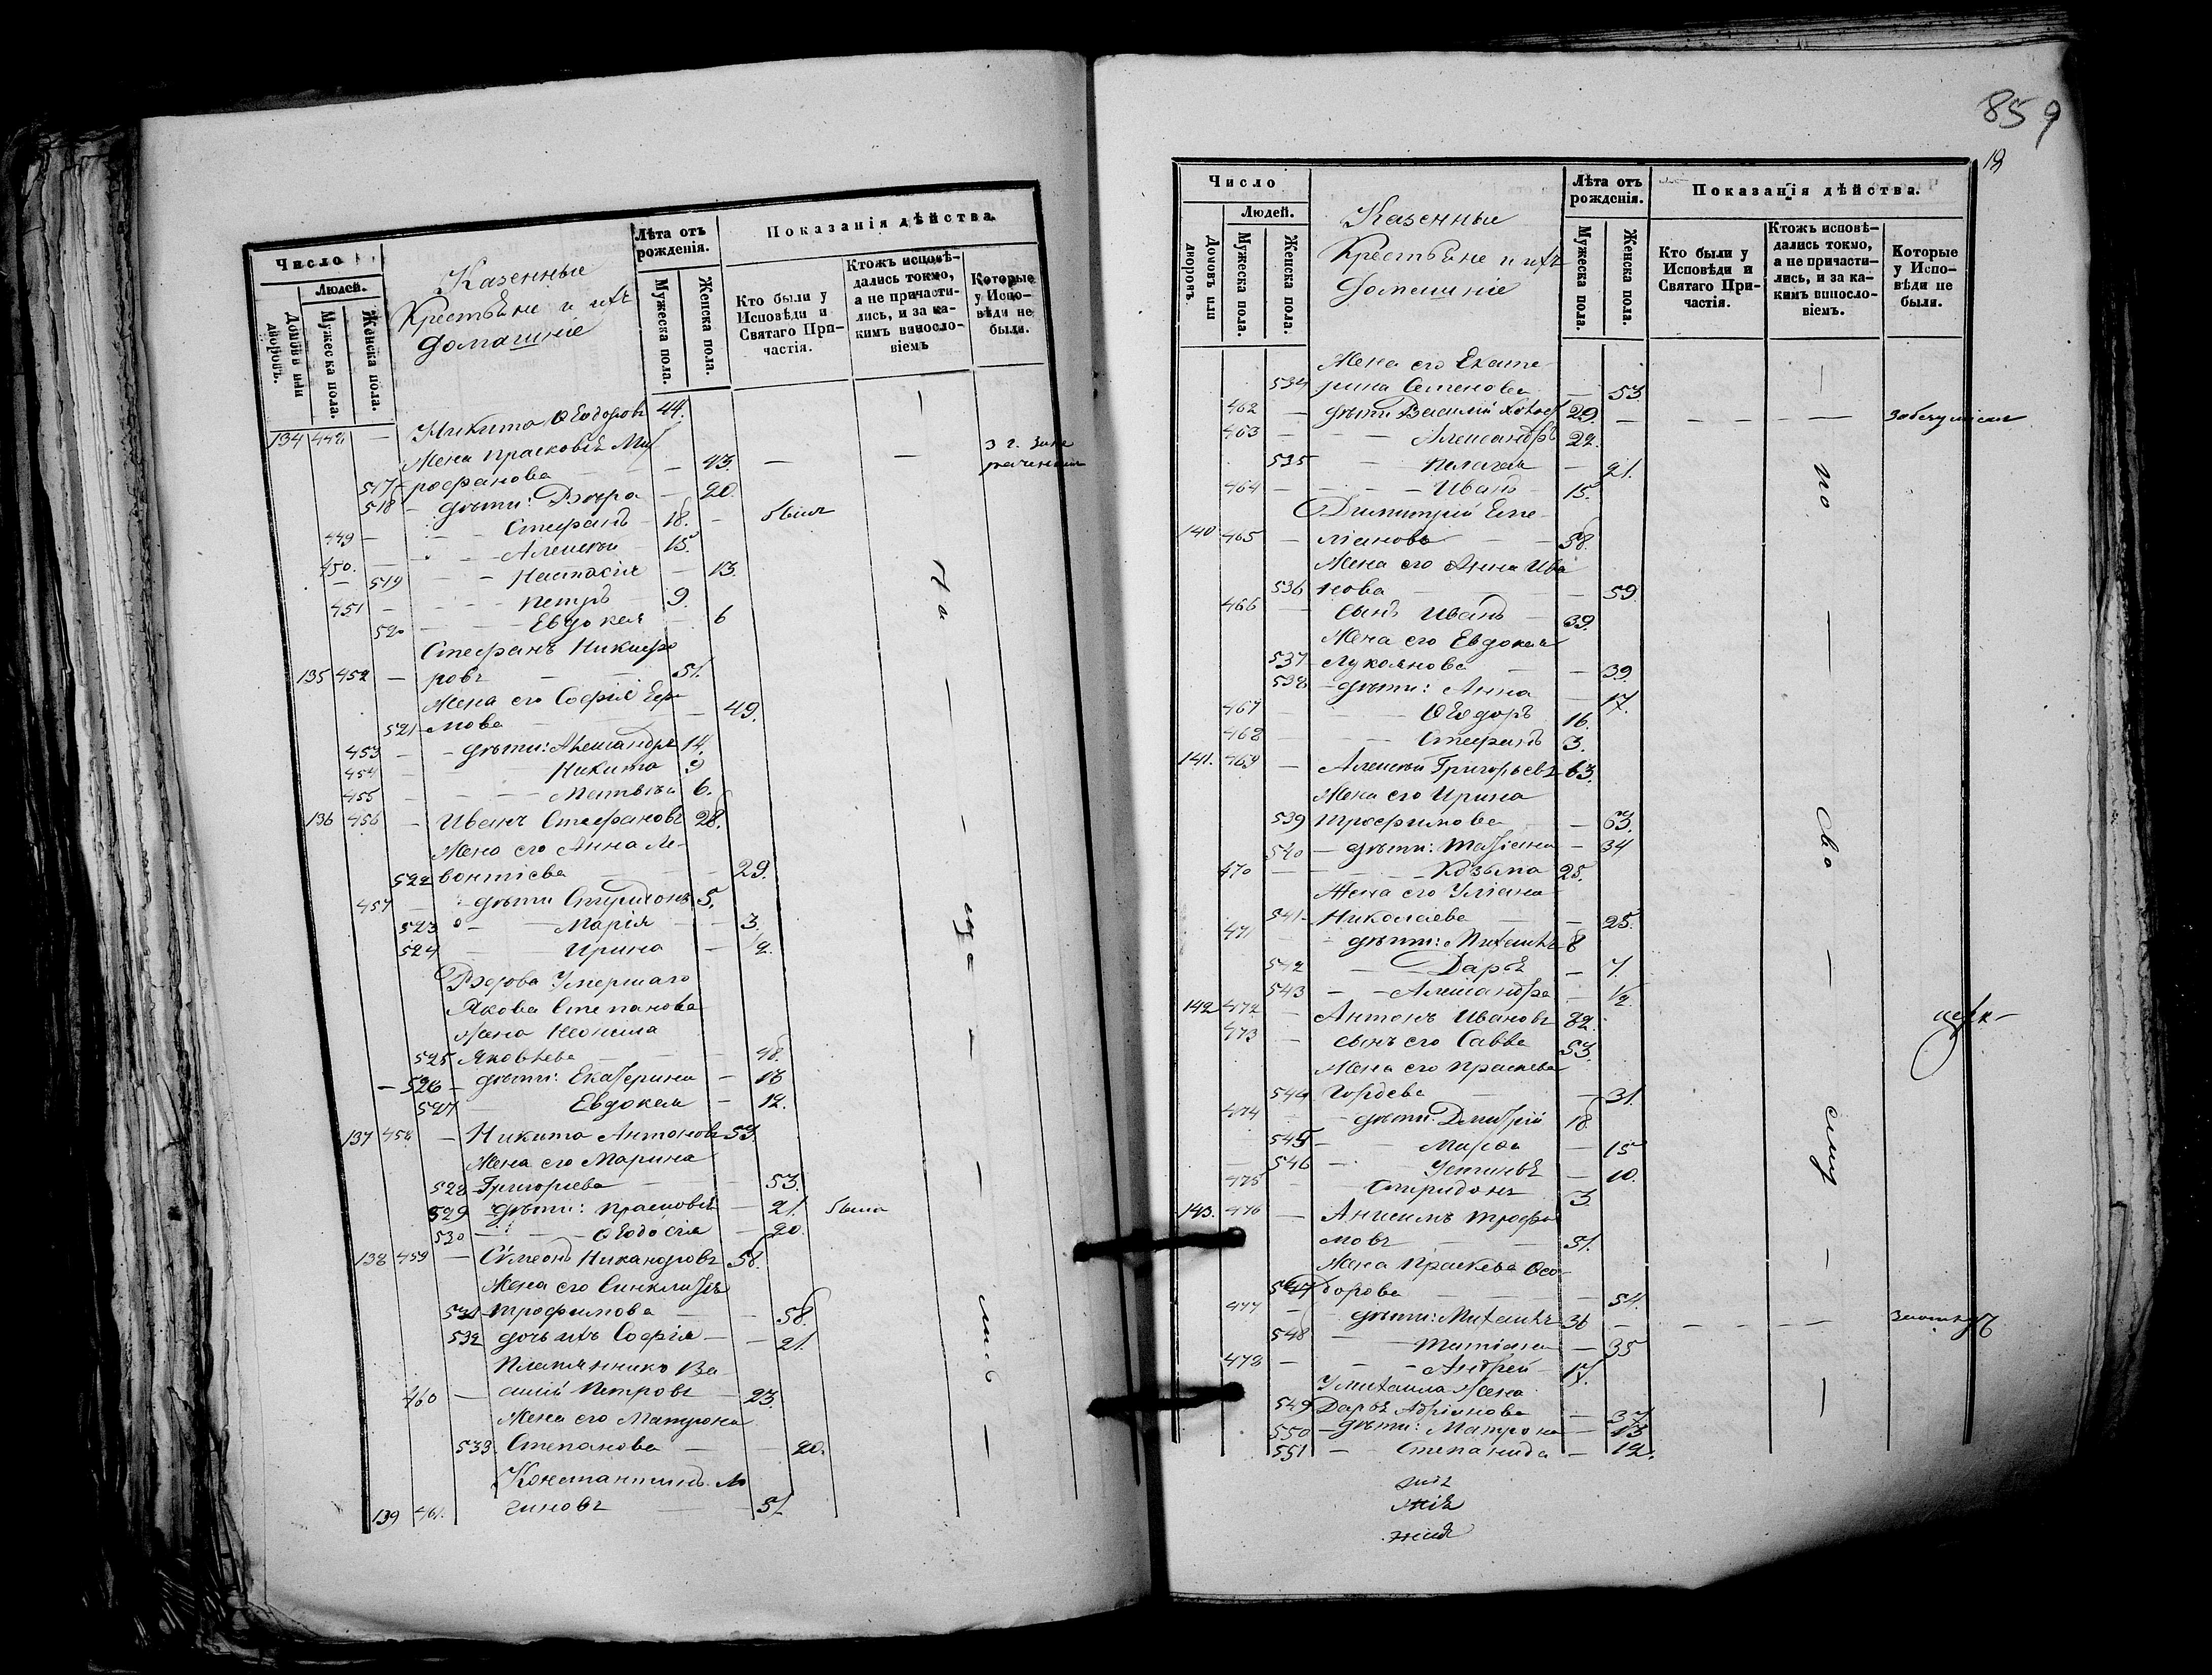 Число
Людей.
Домовъ или дворовъ.
Мужеска пола.
Женска пола.
Казенные
Крестьяне и ихъ
домашніе
Лѣта отъ рожденія.
Мужеска пола.
Женска пола.
Показанія дѣйства.
Кто были у Исповѣди и Святаго Причастія.
Ктожъ исповѣдались токмо, а не причастились, и за какимъ винословіемъ
Которые у Исповѣди не были.
134 448 — Никита Ѳеодоровъ 44.
Жена Прасковья Мит
517 рофанова — 43.
518 — дѣти: Вѣра — 20.
449 — Стефанъ — 18. — были
450. — Алексѣй 15.
519 — Настасія — 13.
451 — Петръ — 9.
520 — Евдокея — 6
Стефанъ Никифо
135 452 — ровъ 51.
Жена его Софія Еф
521 мова — 49.
453 — дѣти: Александръ 14.
454 — Никита 9
455 — Матвѣй 6.
136 456 — Иванъ Стефановъ 28.
Жена его Анна Ле-
522 вонтіева 29.
457 — дѣти Спиридонъ 5.
523 — Марія — 3.
524 — Ирина — 1/2.
Вдова Умершаго
Якова Степанова
жена Неонила
525 Яковлева — 48.
— 526 — дѣти: Екатерина — 18
527 — Евдокея — 12.
137 458 — Никита Антоновъ 53.
Жена его Марина
528 Григорьева — 53.
529 дѣти: Прасковья — 21. была
530 — Ѳеодосія — 20.
138 459 — Сѵмеонъ Никаноровъ 58.
Жена его Синклитія
531 Трофимова — 58.
532 дочь ихъ Софія — 21.
Племянникъ Ва
460 — силій Петровъ — 23.
Жена его Матрона
533. Степанова — 20.
Константинъ Ло
139 461. гиновъ — 51
859
19
Число
Людей.
Домовъ или дворовъ.
Мужеска пола.
Женска пола.
Казенные
Крестьяне и ихъ
домашніе
Лѣта отъ рожденія.
Мужеска пола.
Женска пола.
Показанія дѣйства.
Кто были у Исповѣди и Святаго Причастія.
Ктожъ исповѣдались токмо, а не причастились, и за какимъ винословіемъ.
Которые у Исповѣди не были.
Жена его Екате-
534 рина Семенова — 53.
462 — дѣти Василій 29.
463 — Александръ 22.
535 — Пелагея — 21.
464 — Иванъ 15.
Димитрій Еме-
140 465 — ліановъ — 58.
Жена его Анна Ива
536 нова — 59.
466 — сынъ Иванъ — 39.
Жена его Евдокея
537 Лукоянова — 39.
538 — дѣти: Анна — 17.
467 — Ѳеодоръ 16.
468 — Стефанъ 3.
141. 469 — Алексѣй Григорьевъ 63.
Жена его Ирина
539 Трофимова — 63.
540 — дѣти: Татіана — 34
470 — Козьма 25.
Жена его Уліана
541 Николаева — 25.
471 — дѣти: Михаилъ 8
542 — Дарья — 7.
543 — Александра — 1/2.
142 472 — Антонъ Ивановъ 82.
473 — сынъ его Савва 53.
Жена его Праскева
544 Гордеева — 31.
474 — дѣти: Дмитрій 18.
545 — Марѳа — 15
546 — Устинья — 10.
475 — Спиридонъ 3.
143. 476 — Анисимъ Трофи
мовъ — 51.
Жена Праскева Ѳео
547 дорова — 54.
477 — дѣти: Михаилъ 36
548 — Татіана — 35
478 — Андрей — 17.
У Михаила жена
549 Дарья Адріанова — 37
550 — дѣти: Матрона — 13
551 — Степанида — 12.
по
сво
ему